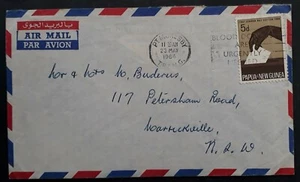 بالبريد الجوي
AIR MAIL
PAR AVION
11 30 AM
22 MAY
BLOOD
ARE
URGENTLY
5d
PAPUA & NEW GUINEA
Mr & Mrs W. Buderus,
117 Petersham Road,
Marrickville,
N.S.W.